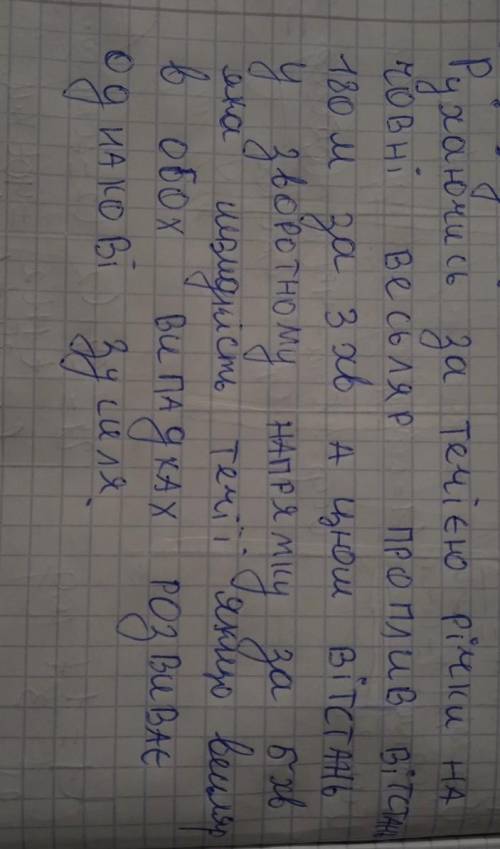 Рухаючись за течією річки на
човні весьляр проплив вітстань
180 м за 3 хв а цюш вітстань
у зворотному напрямку за 5 хв
яка швидкість течії; якщо весляр
в обох випадках розвиває
однакові зусиля